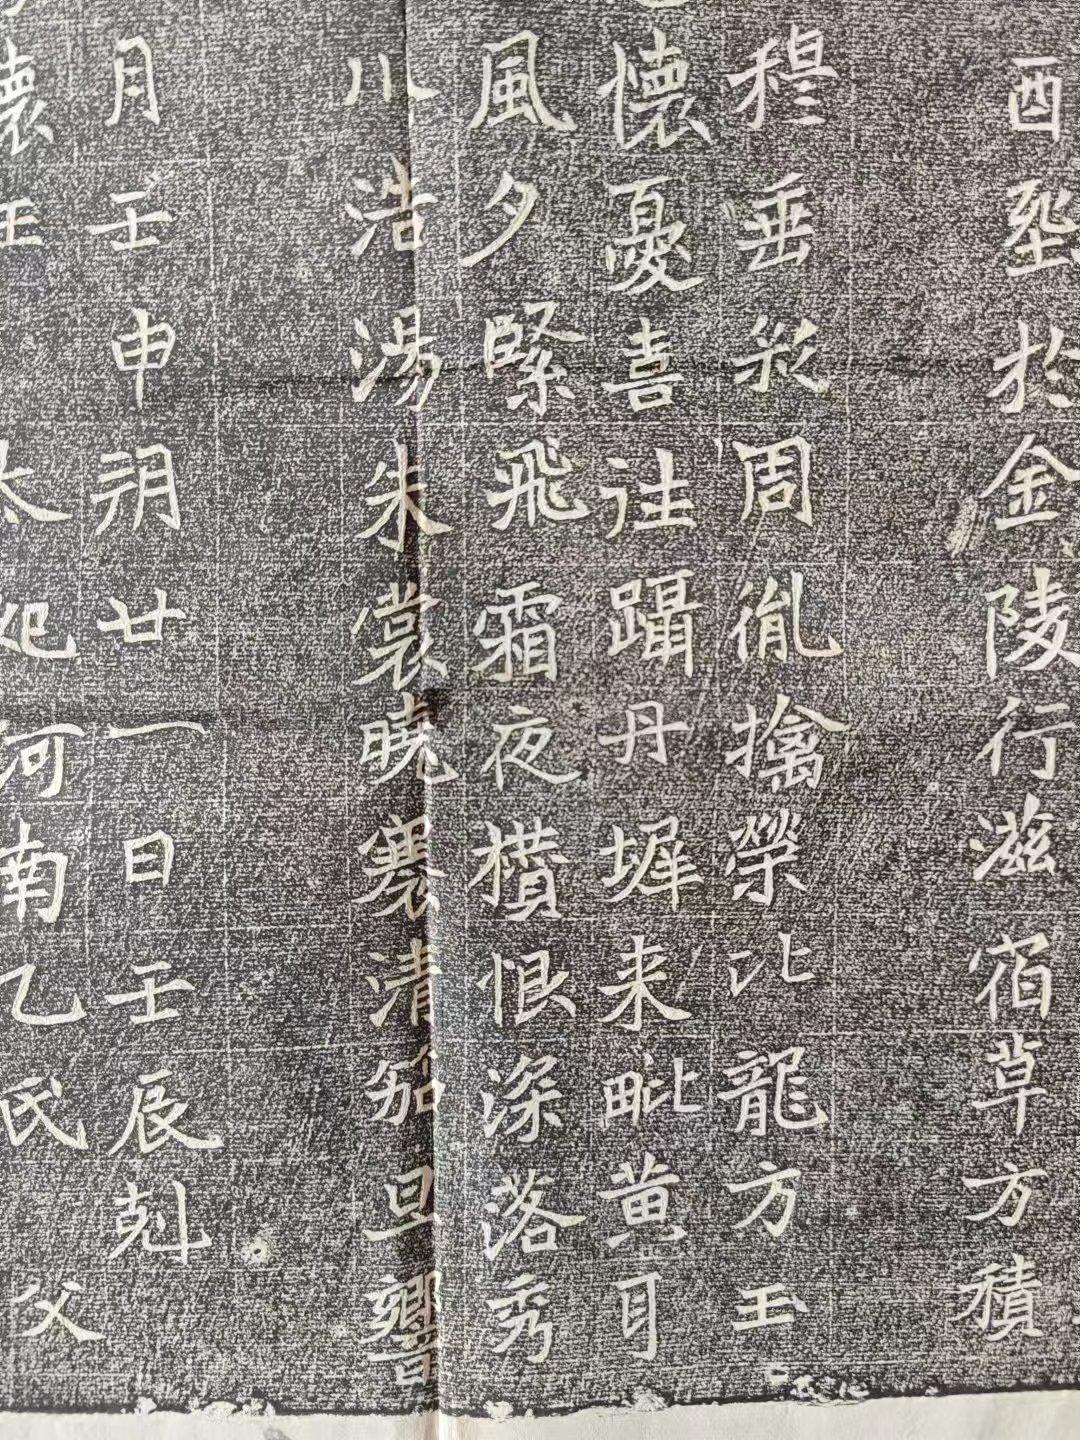 酉堲於金陵行滋宿草方積
穆垂彩周胤擒榮比龍方玉
懷憂喜詿躡丹墀来毗黃耳
風夕緊飛霜夜横恨深落秀
川浩湯朱裳曉褰清笳旦響
月壬申朔廿一日壬辰剋
懷王太妃河南乙氏父